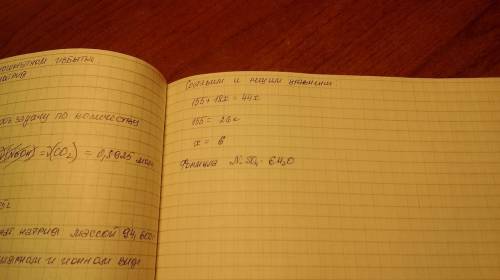 избытке
натрия
задачу по количеству
ν(NaOH) = ν(CO₂) = 0,8925 моль
натрия массой 94,605г
и ионном виде
Составим и решим уравнение
155 + 18x = 44x
155 = 26x
x = 6
Формула NiSO₄ · 6H₂O